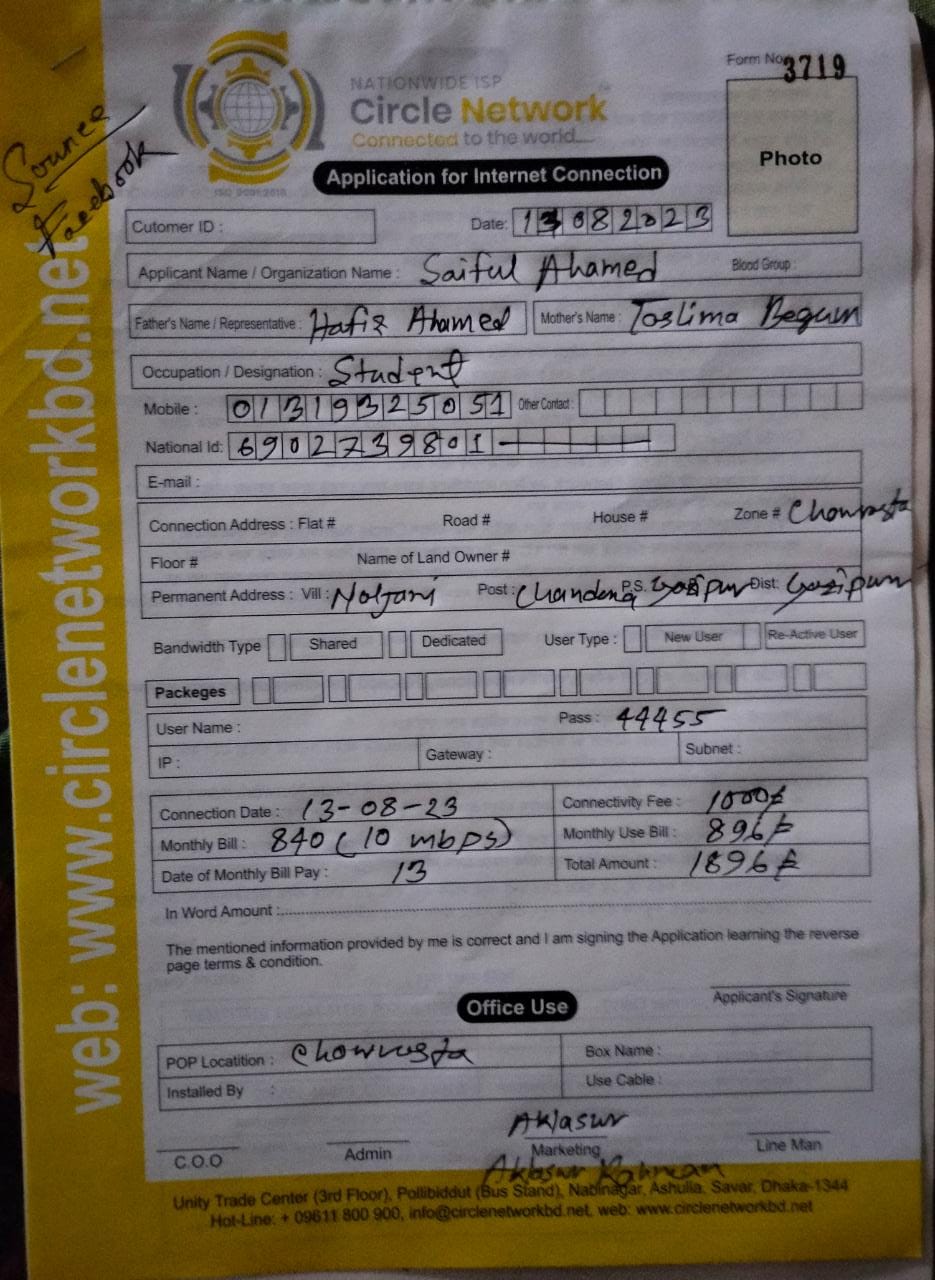 Source
Facebook
web: www.circlenetworkbd.net
NATIONWIDE ISP
Circle Network
Connected to the world....
ISO 9001:2015
Form No. 3719
Photo
Application for Internet Connection
Cutomer ID :
Date: 13082023
Applicant Name / Organization Name : Saiful Ahamed Blood Group :
Father's Name / Representative : Hafiz Ahamed Mother's Name : Toslima Begum
Occupation / Designation : Student
Mobile : 01319325051 Other Contact :
National Id: 6902739801
E-mail :
Connection Address : Flat # Road # House # Zone # Chowrasta
Floor # Name of Land Owner #
Permanent Address : Vill : Noljani Post : Chandona P.S. Gazipur Dist: Gazipur
Bandwidth Type Shared Dedicated User Type : New User Re-Active User
Packeges
User Name : Pass : 44455
IP : Gateway : Subnet :
Connection Date : 13-08-23 Connectivity Fee : 1000৳
Monthly Bill : 840 (10 mbps) Monthly Use Bill : 896৳
Date of Monthly Bill Pay : 13 Total Amount : 1896৳
In Word Amount :
The mentioned information provided by me is correct and I am signing the Application learning the reverse
page terms & condition.
Applicant's Signature
Office Use
POP Locatition : Chowrasta Box Name :
Installed By : Use Cable :
Aklasur
C.O.O Admin Marketing Line Man
Aklasur Rahman
Unity Trade Center (3rd Floor), Pollibiddut (Bus Stand), Nabinagar, Ashulia, Savar, Dhaka-1344
Hot-Line: + 09611 800 900, info@circlenetworkbd.net, web: www.circlenetworkbd.net